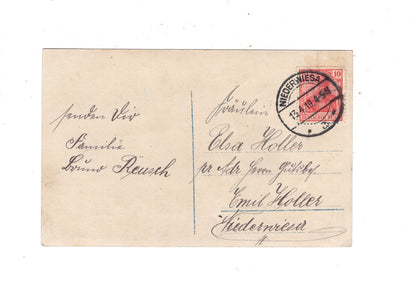 senden Dir
Familie
Bruno Reusch
Fräulein
Elsa Holler
pr Adr Herrn Gutsbes
Emil Holler
Niederwiesa
NIEDERWIESA
13.4.19.4-5N
10